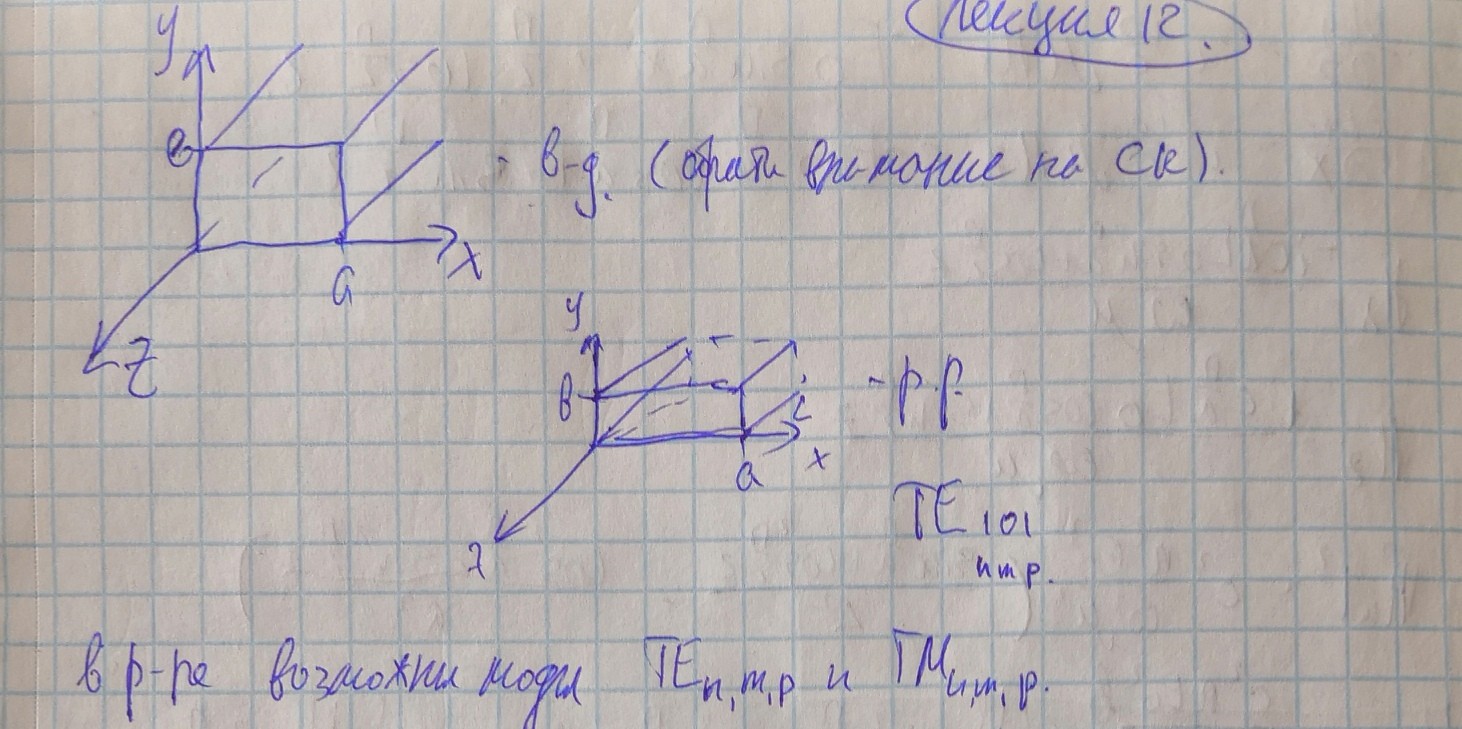 Лекция 12.
y
в
- в-д. (обрати внимание на СК).
a
x
z
y
в
- р-р.
x
a
z
TE 101
n m p.
в р-ре возможны моды TE n,m,p и TM n,m,p.